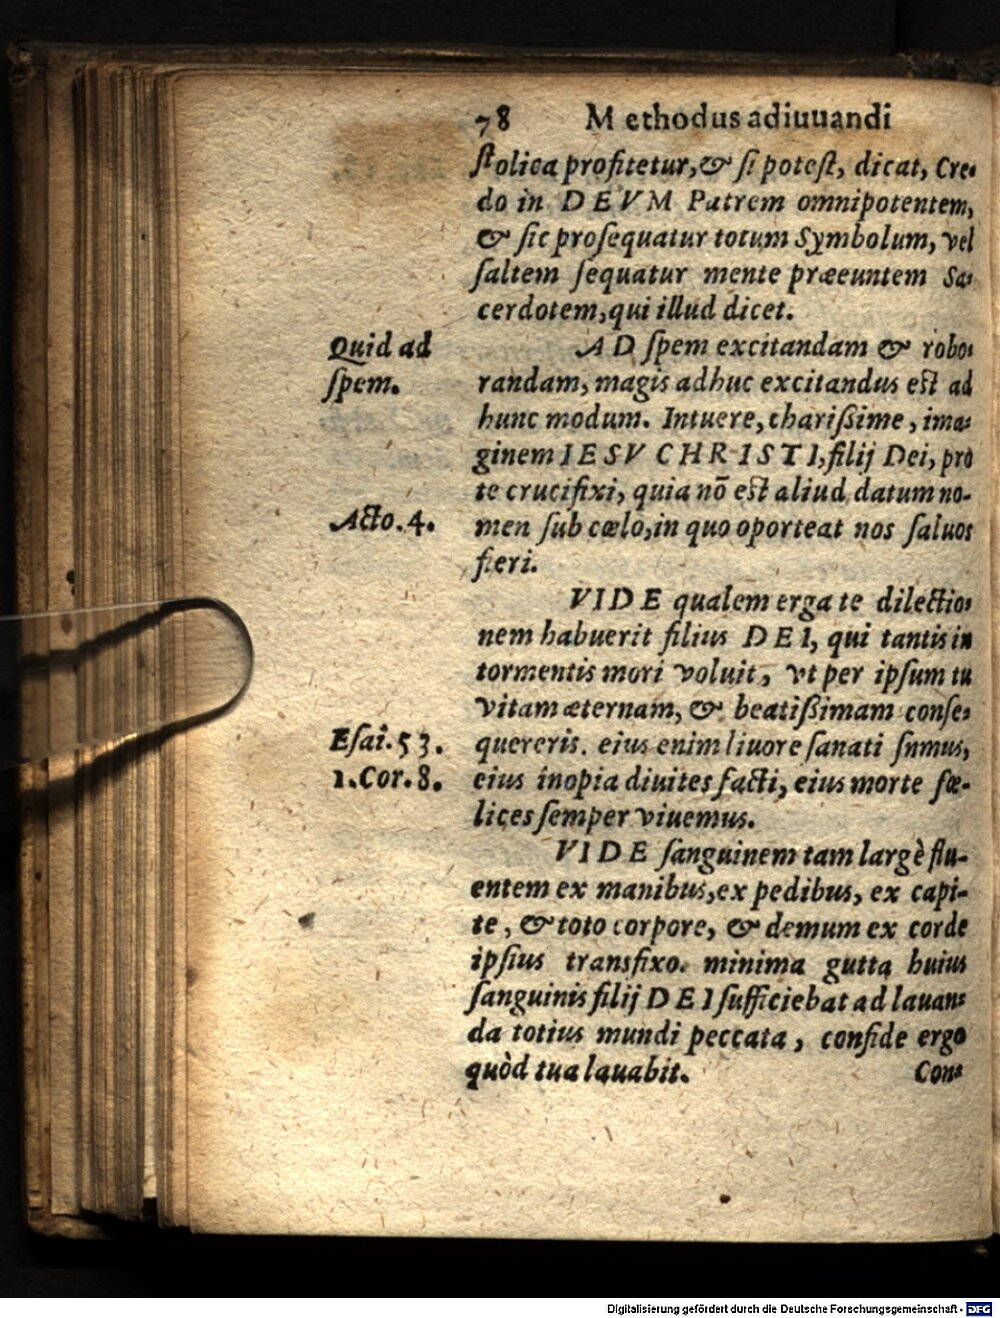 78 Methodus adiuuandi
ſtolica profitetur, & ſi poteſt, dicat, Cre-
do in DEVM Patrem omnipotentem,
& ſic proſequatur totum Symbolum, vel
ſaltem ſequatur mente præeuntem Sa-
cerdotem, qui illud dicet.
Quid ad
ſpem.
AD ſpem excitandam & robo-
randam, magis adhuc excitandus eſt ad
hunc modum. Intuere, chariſſime, ima-
ginem IESV CHRISTI, filij Dei, pro
te crucifixi, quia nō eſt aliud datum no-
Acto. 4.
men ſub cœlo, in quo oporteat nos ſaluos
fieri.
VIDE qualem erga te dilectio-
nem habuerit filius DEI, qui tantis in
tormentis mori voluit, vt per ipſum tu
vitam æternam, & beatiſſimam conſe-
Eſai. 53.
quereris. eius enim liuore ſanati ſnmus,
1. Cor. 8.
eius inopia diuites facti, eius morte fœ-
lices ſemper viuemus.
VIDE ſanguinem tam largè flu-
entem ex manibus, ex pedibus, ex capi-
te, & toto corpore, & demum ex corde
ipſius transfixo. minima gutta huius
ſanguinis filij DEI ſufficiebat ad lauan-
da totius mundi peccata, confide ergo
quòd tua lauabit.
Con-
Digitalisierung gefördert durch die Deutsche Forschungsgemeinschaft - DFG